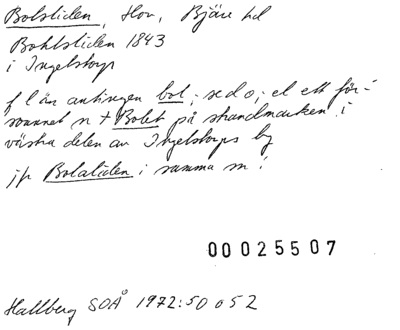 Bolstiden, Hov, Bjäre hd
Bohlstiden 1843
i Ingelstorp
f l än antingen bol, se d o, el ett för-
svunnet n + Bolet på strandmarken i
västra delen av Ingelstorps by
jfr Bolatiden i samma sn!
00025507
Hallberg SOÅ 1972:50 o 52